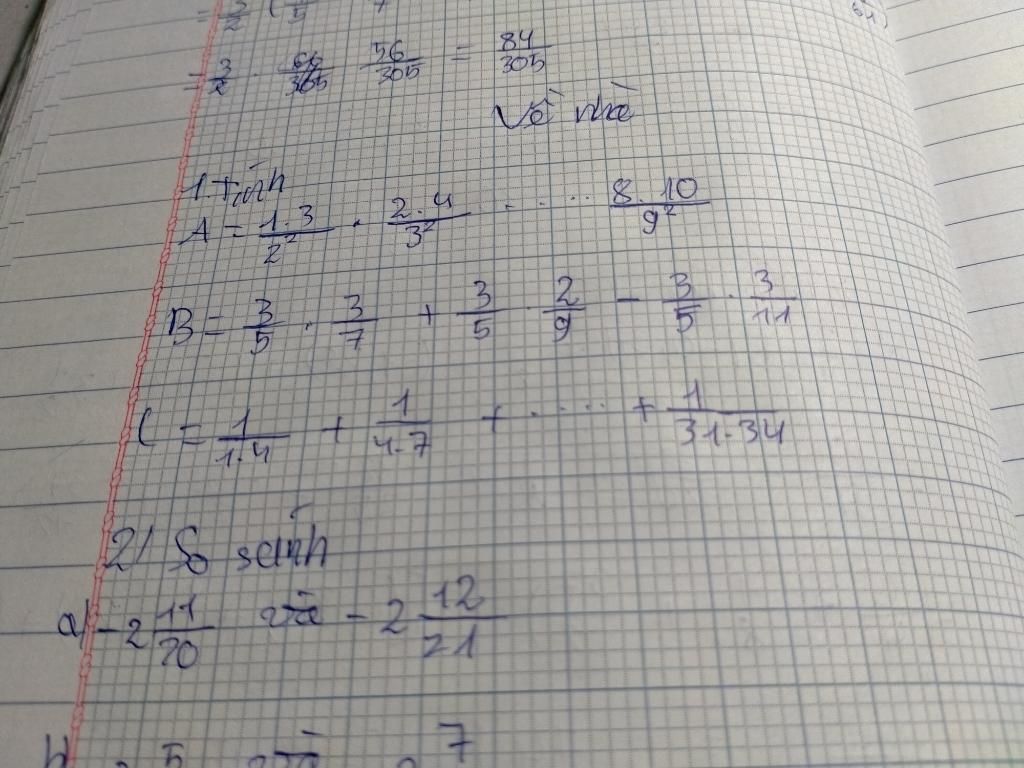 = 3/2 · 56/305 = 84/305
Về nhà
1. Tính
A = 1.3/2² · 2.4/3² ..... 8.10/9²
B = 3/5 · 3/7 + 3/5 · 2/9 - 3/5 · 3/11
C = 1/1.4 + 1/4.7 + ..... + 1/31.34
2/ So sánh
a) -2 11/20 và -2 12/21
b) 5 và 7